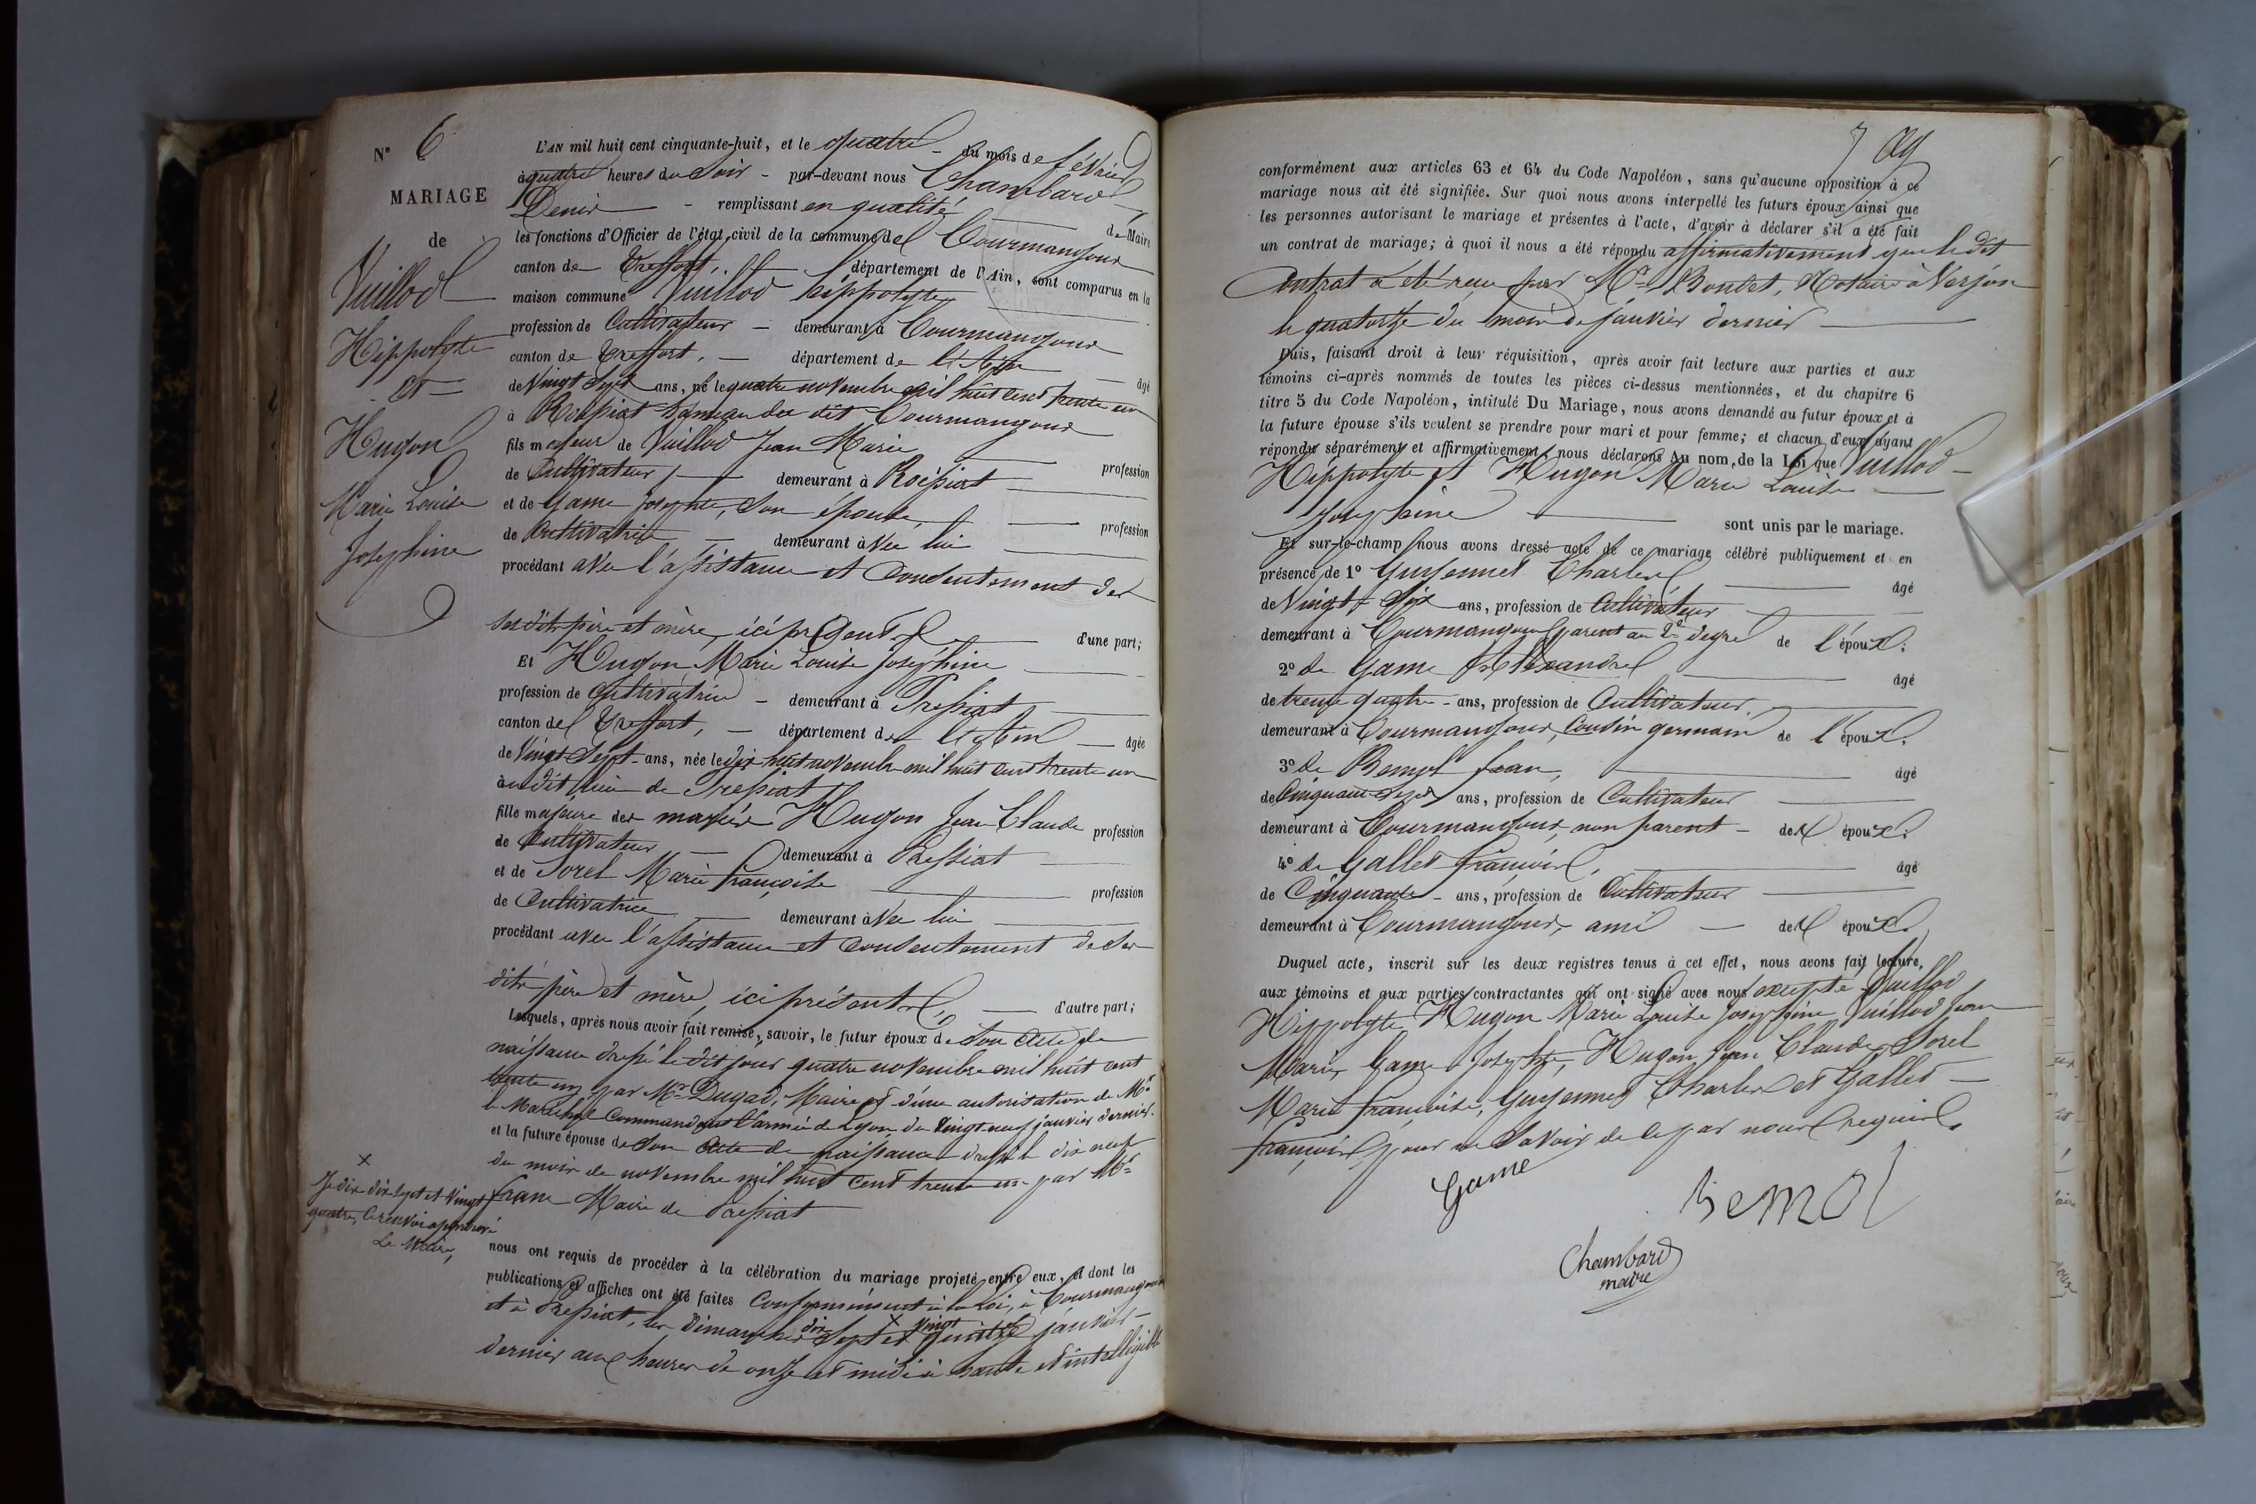 N° 6
MARIAGE
de
Vuillod
Hippolyte
et
Hugon
Marie Louise
Josephine
L'AN mil huit cent cinquante-huit, et le quatre du mois de février
à quatre heures du soir par-devant nous Chambard
Denis remplissant en qualité de Maire
les fonctions d'Officier de l'état civil de la commune de Courmangoux
canton de Treffort, département de l'Ain, sont comparus en la
maison commune Vuillod hippolyte
profession de Cultivateur demeurant à Courmangoux
canton de Treffort, département de l'Ain âgé
de Vingt Sept ans, né le quatre novembre mil huit cent trente un
à Roissiat hameau du dit Courmangoux
fils majeur de Vuillod Jean Marie profession
de Cultivateur demeurant à Roissiat
et de Game Josephte, son épouse, profession
de Cultivatrice demeurant avec lui
procédant avec l'assistance et consentement des
ses dits père et mère, ici présents d'une part;
Et Hugon Marie Louise Joséphine
profession de Cultivatrice demeurant à Pressiat
canton de Treffort, département de l'Ain âgée
de Vingt Sept ans, née le dix huit novembre mil huit cent trente un
au dit lieu de Pressiat
fille majeure des mariés Hugon Jean Claude profession
de Cultivateur demeurant à Pressiat
et de Sorel Marie françoise profession
de Cultivatrice demeurant avec lui
procédant avec l'assistance et consentement de ses
dits père et mère, ici présents, d'autre part;
Lesquels, après nous avoir fait remise, savoir, le futur époux de Son acte de
naissance dressé le dit jour quatre novembre mil huit cent
trente un par Mr Dugad, Maire et d'une autorisation de Mr
le Maréchal Commandant l'armée de Lyon du Vingt neuf janvier dernier.
et la future épouse de Son acte de naissance dressé le dix neuf
du mois de novembre mil huit cent trente un par Mr
franc Maire de Pressiat
nous ont requis de procéder à la célébration du mariage projeté entre eux, et dont les
publications et affiches ont été faites Conformément à la loi, à Courmangoux
et à Pressiat, les Dimanches dix Sept et x vingt quatre janvier
dernier aux heures de onze et midi à haute et intelligible
x
Je dis dix sept et Vingt
quatre, le renvoi approuvé
Le Maire,
conformément aux articles 63 et 64 du Code Napoléon, sans qu'aucune opposition à ce
mariage nous ait été signifiée. Sur quoi nous avons interpellé les futurs époux ainsi que
les personnes autorisant le mariage et présentes à l'acte, d'avoir à déclarer s'il a été fait
un contrat de mariage; à quoi il nous a été répondu affirmativement que le dit
Contrat a été reçu par Me Bontet, Notaire à Verjon
le quatorze du mois de janvier dernier
Puis, faisant droit à leur réquisition, après avoir fait lecture aux parties et aux
témoins ci-après nommés de toutes les pièces ci-dessus mentionnées, et du chapitre 6
titre 5 du Code Napoléon, intitulé Du Mariage, nous avons demandé au futur époux et à
la future épouse s'ils veulent se prendre pour mari et pour femme; et chacun d'eux ayant
répondu séparément et affirmativement, nous déclarons Au nom de la Loi que Vuillod
Hippolyte et Hugon Marie Louise
Josephine sont unis par le mariage.
Et sur-le-champ nous avons dressé acte de ce mariage célébré publiquement et en
présence de 1° Guyennet Charles âgé
de Vingt Six ans, profession de Cultivateur
demeurant à Courmangoux parent au 2e degré de l'époux;
2° de Game Alexandre âgé
de trente quatre ans, profession de Cultivateur,
demeurant à Courmangoux, Cousin germain de l'époux;
3° de Bemol Jean, âgé
de Cinquante sept ans, profession de Cultivateur
demeurant à Courmangoux, non parent des époux;
4° de Gallet françois, âgé
de Cinquante ans, profession de Cultivateur
demeurant à Courmangoux, ami des époux.
Duquel acte, inscrit sur les deux registres tenus à cet effet, nous avons fait lecture,
aux témoins et aux parties contractantes qui ont signé avec nous excepté Vuillod
Hippolyte Hugon Marie Louise Josephine, Vuillod Jean
Marie, Game Josephte, Hugon Jean Claude, Sorel
Marie françoise, Guyennet Charles et Gallet
françois, pour ne Savoir de ce par nous requis.
Game
Bemol
Chambard
maire